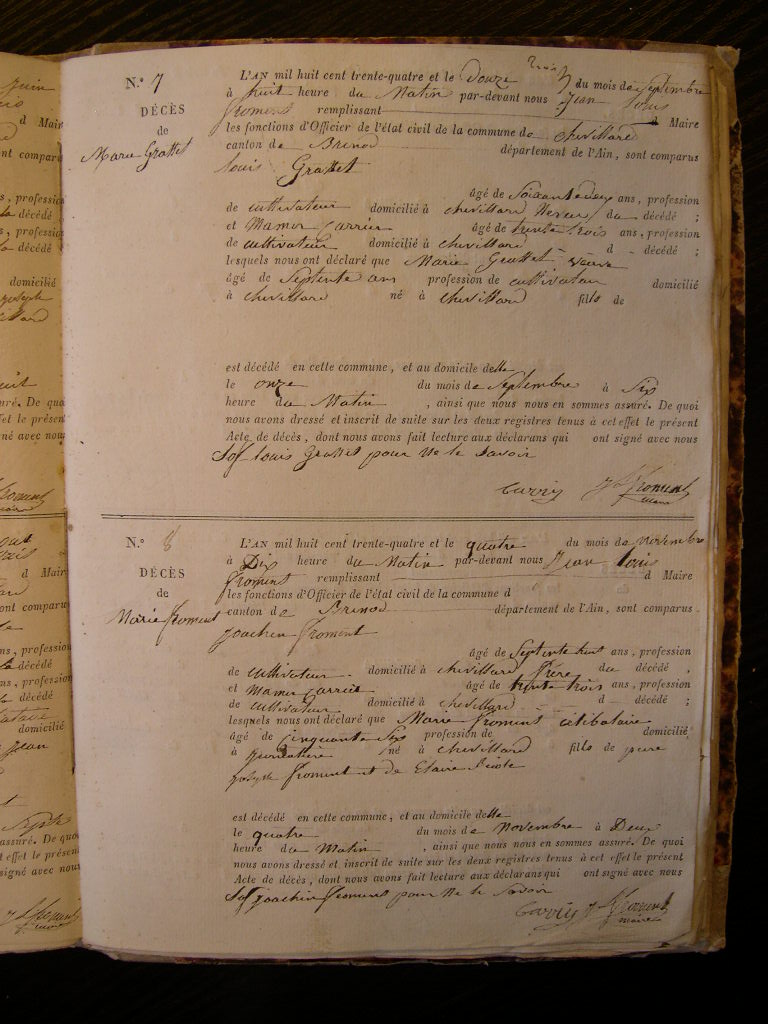 N.° 7
DÉCÈS
de
Marie Grasset
L'AN mil huit cent trente-quatre et le Douze du mois de Septembre
à huit heure du Matin par-devant nous Jean Louis
froment remplissant d Maire
les fonctions d'Officier de l'état civil de la commune de Chevillard
canton de Brenod département de l'Ain, sont comparus
Louis Grasset
âgé de Soixante deux ans, profession
de cultivateur domicilié à chevillard Neveu du décédé ;
et Mamer Carrier âgé de trente trois ans, profession
de cultivateur domicilié à chevillard d décédé ;
lesquels nous ont déclaré que Marie Grasset veuve
âgé de Septente ans profession de cultivateur domicilié
à chevillard né à Chevillard fils de
est décédé en cette commune, et au domicile delle
le onze du mois de Septembre à Six
heure du Matin , ainsi que nous nous en sommes assuré. De quoi
nous avons dressé et inscrit de suite sur les deux registres tenus à cet effet le présent
Acte de décès, dont nous avons fait lecture aux déclarans qui ont signé avec nous
Sof louis Grasset pour ne le Savoir
Carrier J L froment
maire
N.° 8
DÉCÈS
de
Marie froment
L'AN mil huit cent trente-quatre et le quatre du mois de Novembre
à Dix heure du Matin par-devant nous Jean Louis
froment remplissant d Maire
les fonctions d'Officier de l'état civil de la commune d
canton de Brenod département de l'Ain, sont comparus
joachin froment
âgé de Septente huit ans, profession
de cultivateur domicilié à chevillard frére du décédé ,
et Mamer Carrier âgé de trente trois ans, profession
de cultivateur domicilié à chevillard d décédé ;
lesquels nous ont déclaré que Marie froment célibataire
âgé de cinquante Six profession de domicilié
à né à chevillard fille de
joseph froment et de Claire
est décédé en cette commune, et au domicile delle
le quatre du mois de Novembre à Deux
heure du Matin , ainsi que nous nous en sommes assuré. De quoi
nous avons dressé et inscrit de suite sur les deux registres tenus à cet effet le présent
Acte de décès, dont nous avons fait lecture aux déclarans qui ont signé avec nous
Sof joachin froment pour ne le Savoir
Carrier J L froment
maire